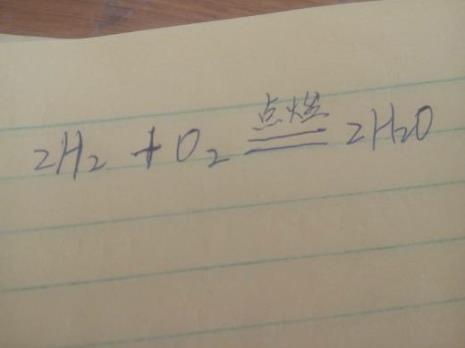 2H₂ + O₂ 点燃═══ 2H₂O